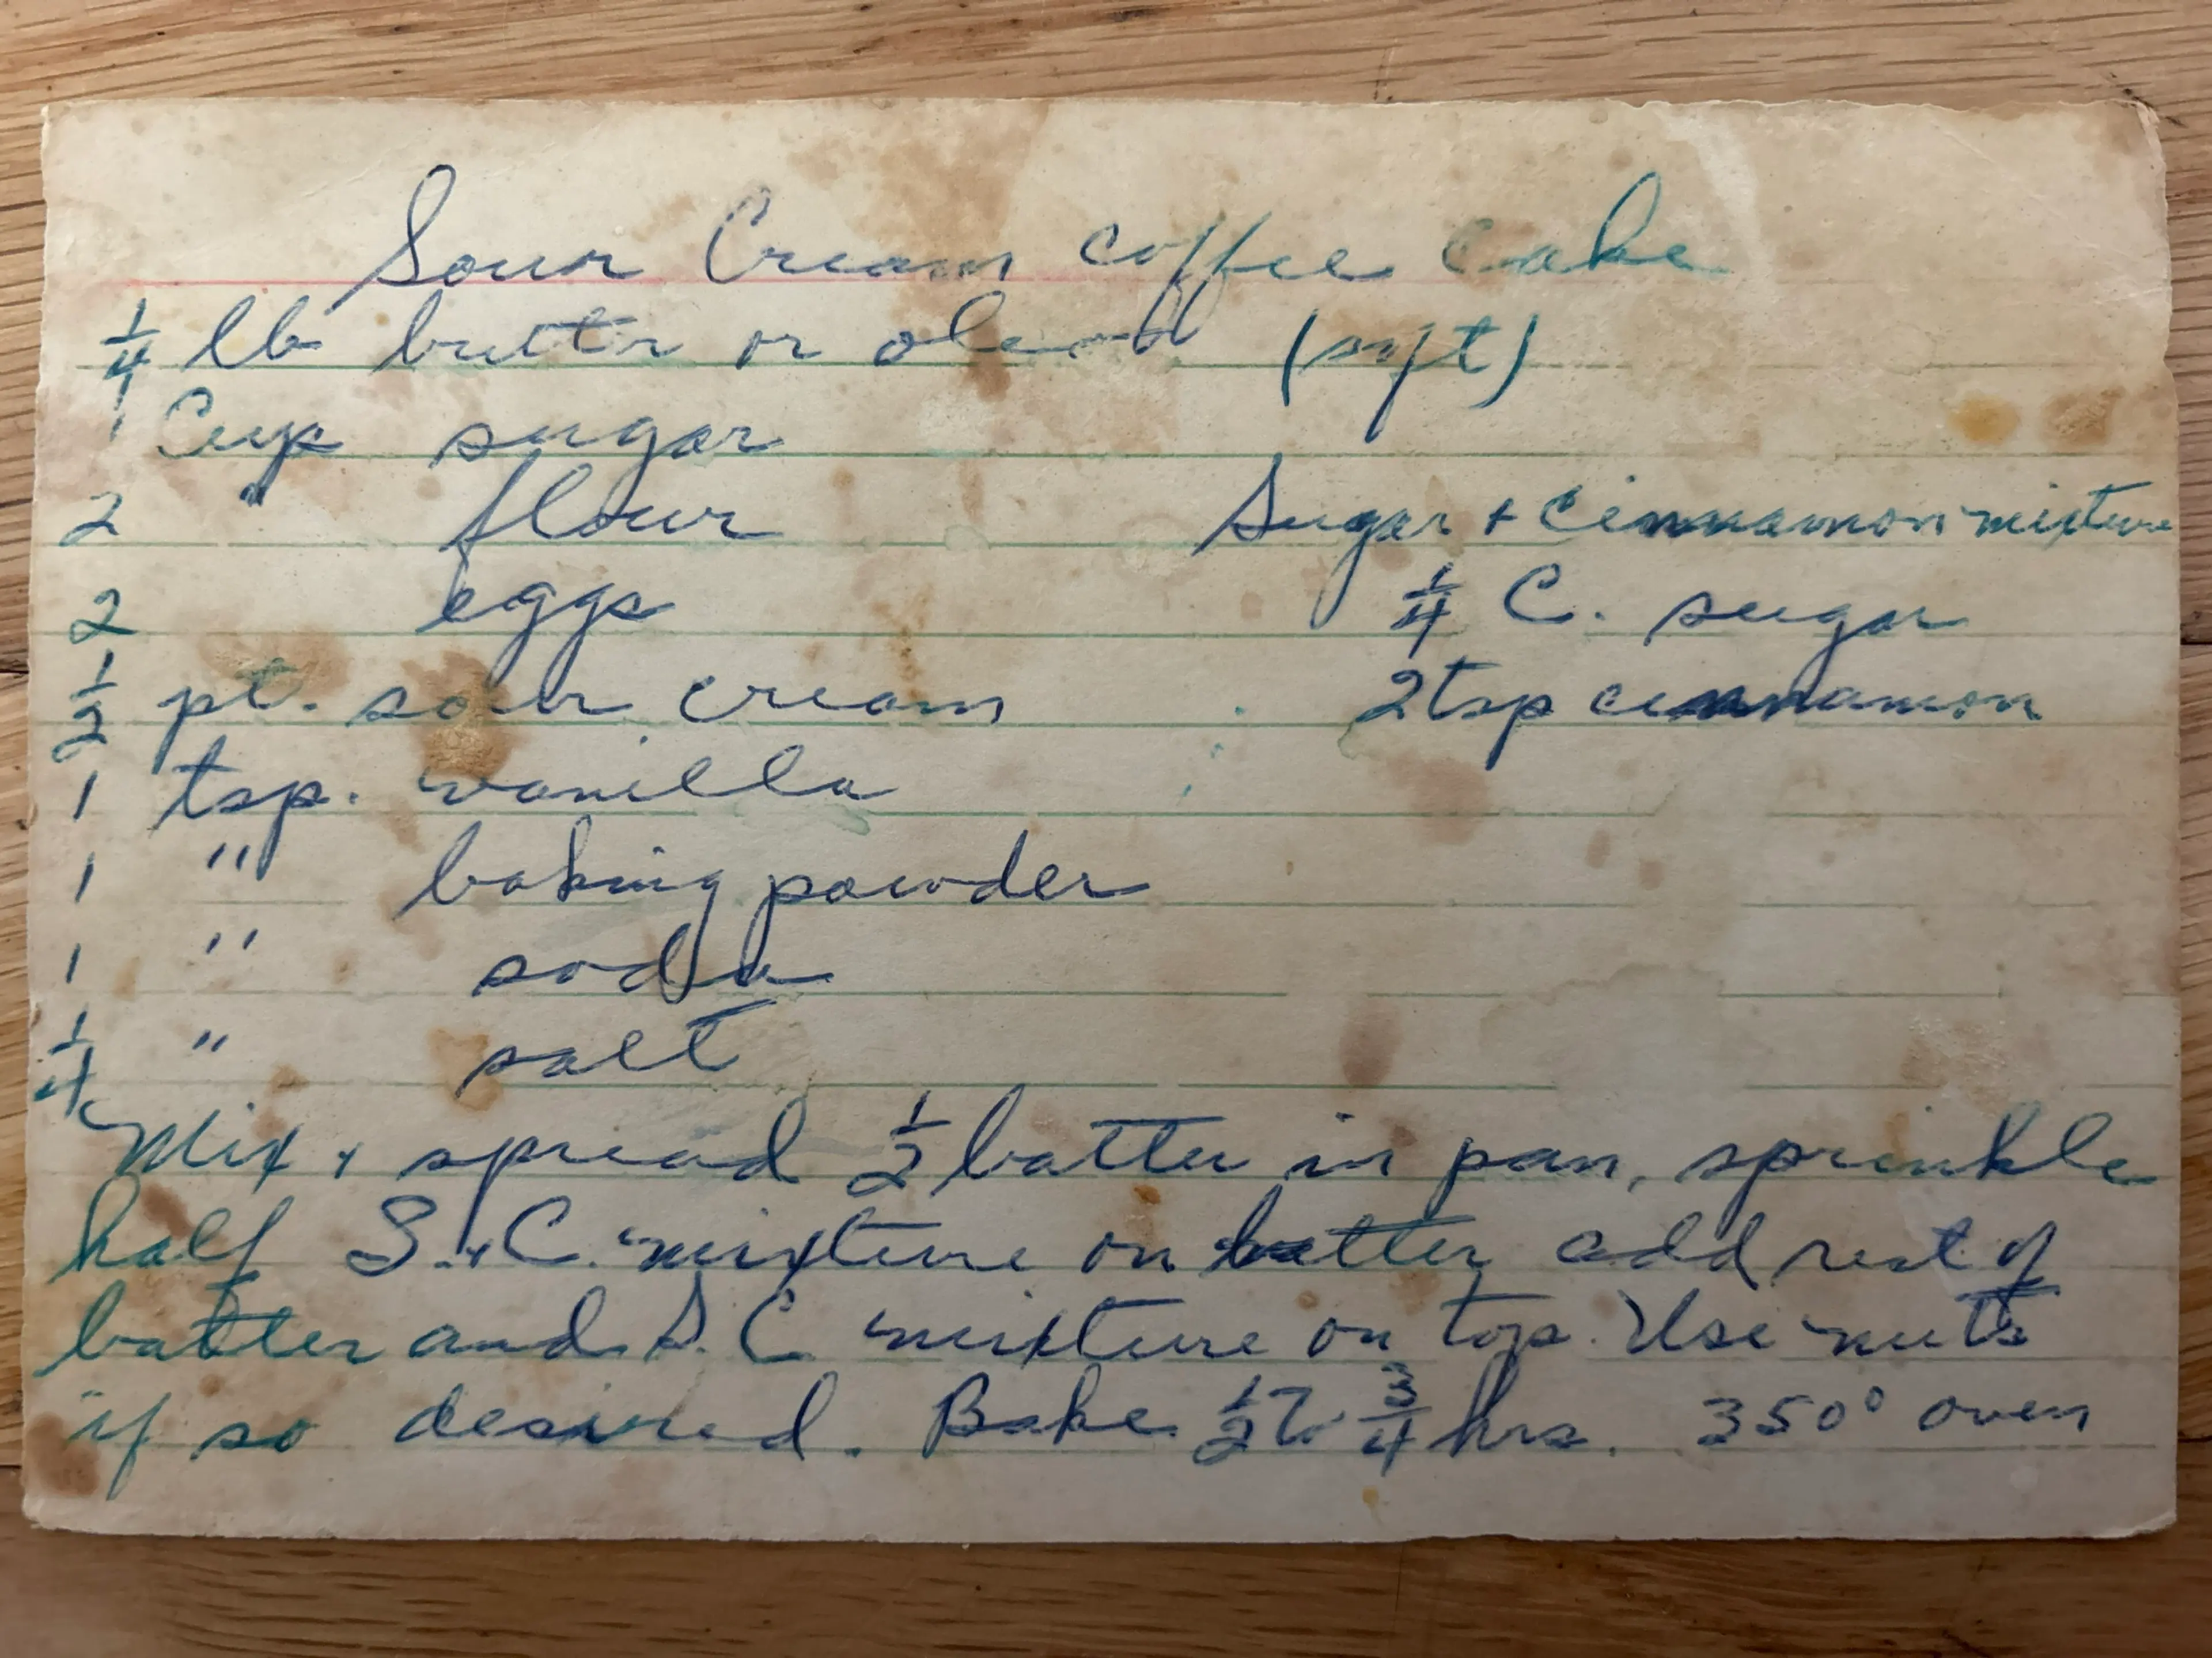 Sour Cream coffee Cake
1/4 lb butter or oleo (soft)
1 Cup sugar
2 " flour
Sugar + Cinnamon mixture
2 eggs
1/4 C. sugar
1/2 pt. sour cream
2 tsp cinnamon
1 tsp. vanilla
1 " baking powder
1 " soda
1/4 " salt
Mix + spread 1/2 batter in pan, sprinkle
half S. + C. mixture on batter add rest of
batter and S. C mixture on top. Use nuts
if so desired. Bake 1/2 to 3/4 hrs. 350° oven